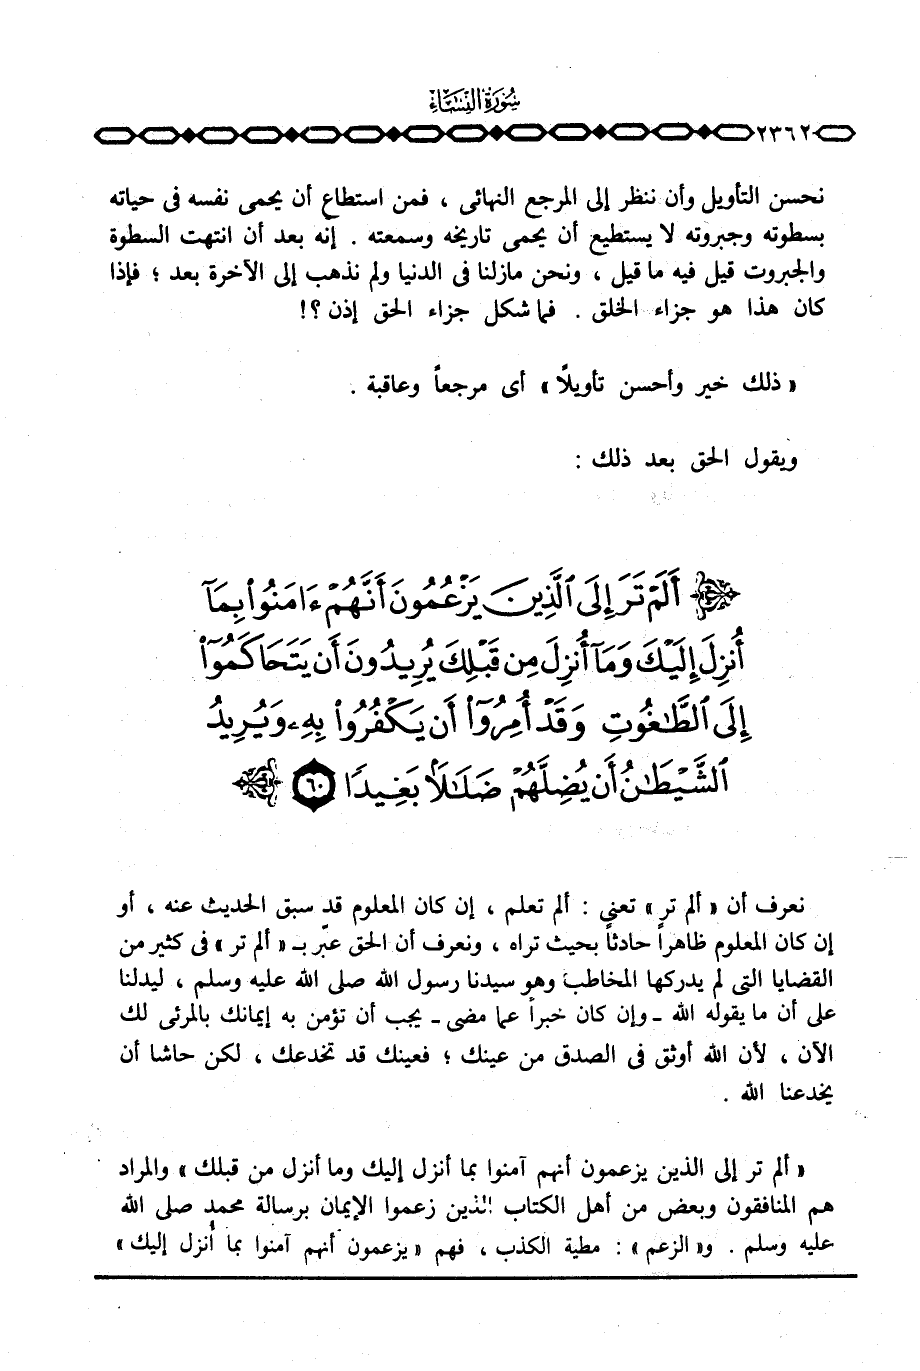 سُورَةُ النِّسَاءِ
٢٣٦٢
نحسن التأويل وأن ننظر إلى المرجع النهائى ، فمن استطاع أن يحمى نفسه فى حياته
بسطوته وجبروته لا يستطيع أن يحمى تاريخه وسمعته . إنه بعد أن انتهت السطوة
والجبروت قيل فيه ما قيل ، ونحن مازلنا فى الدنيا ولم نذهب إلى الآخرة بعد ؛ فإذا
كان هذا هو جزاء الخلق . فما شكل جزاء الحق إذن ؟!
« ذلك خير وأحسن تأويلاً » أى مرجعاً وعاقبة .
ويقول الحق بعد ذلك :
أَلَمْ تَرَ إِلَى ٱلَّذِينَ يَزْعُمُونَ أَنَّهُمْ ءَامَنُوا۟ بِمَآ
أُنزِلَ إِلَيْكَ وَمَآ أُنزِلَ مِن قَبْلِكَ يُرِيدُونَ أَن يَتَحَاكَمُوٓا۟
إِلَى ٱلطَّٰغُوتِ وَقَدْ أُمِرُوٓا۟ أَن يَكْفُرُوا۟ بِهِۦ وَيُرِيدُ
ٱلشَّيْطَٰنُ أَن يُضِلَّهُمْ ضَلَٰلًۢا بَعِيدًا ٦٠
نعرف أن « ألم تر » تعنى : ألم تعلم ، إن كان المعلوم قد سبق الحديث عنه ، أو
إن كان المعلوم ظاهراً حادثاً بحيث تراه ، ونعرف أن الحق عبّر بـ « ألم تر » فى كثير من
القضايا التى لم يدركها المخاطب وهو سيدنا رسول الله صلى الله عليه وسلم ، ليدلنا
على أن ما يقوله الله ـ وإن كان خبراً عما مضى ـ يجب أن تؤمن به إيمانك بالمرئى لك
الآن ، لأن الله أوثق فى الصدق من عينك ؛ فعينك قد تخدعك ، لكن حاشا أن
يخدعنا الله .
« ألم تر إلى الذين يزعمون أنهم آمنوا بما أنزل إليك وما أنزل من قبلك » والمراد
هم المنافقون وبعض من أهل الكتاب الذين زعموا الإيمان برسالة محمد صلى الله
عليه وسلم . و« الزعم » : مطية الكذب ، فهم « يزعمون أنهم آمنوا بما أُنزل إليك »